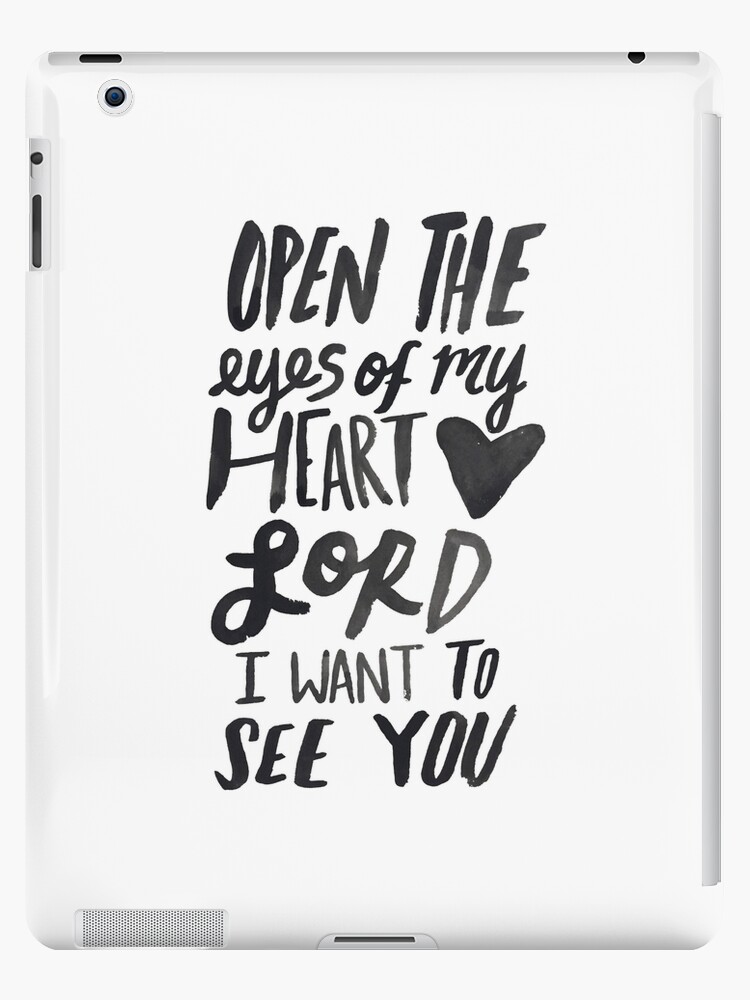 OPEN THE
eyes of my
HEART
LORD
I WANT TO
SEE YOU